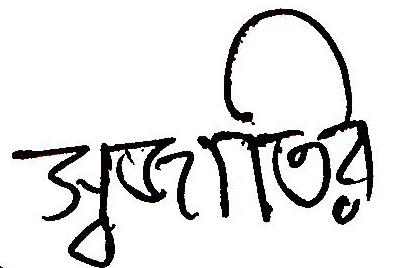 সুজাতির